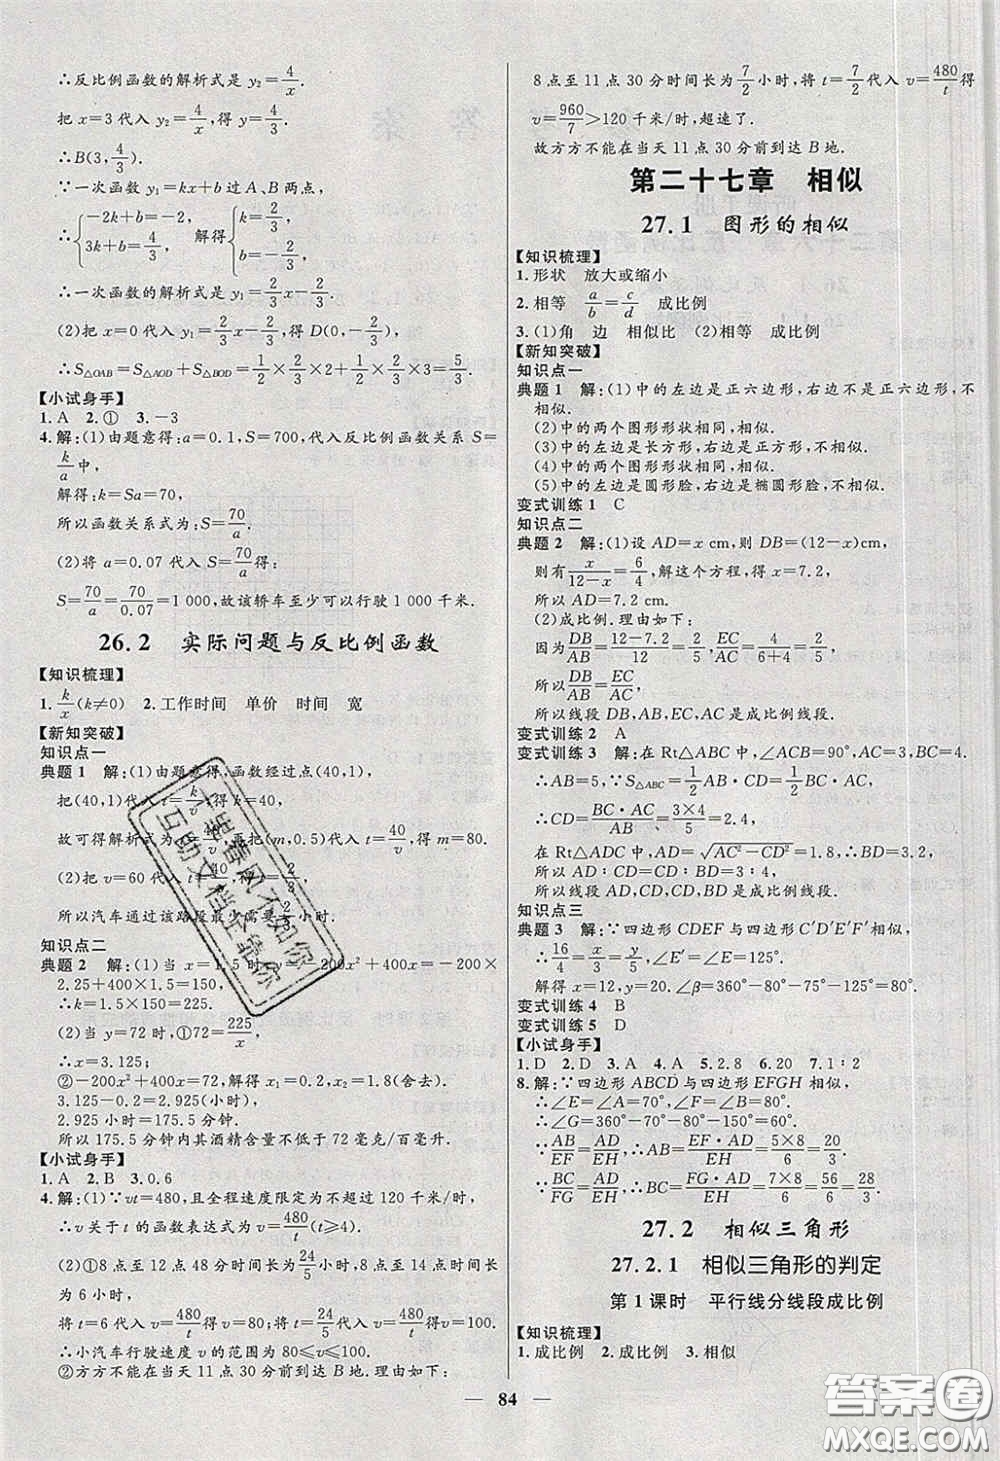 ∴反比例函数的解析式是 y₂=4/x.
把 x=3代入 y=4/x,得 y=4/3.
∴B(3,4/3).
∵一次函数 y₁=kx+b 过 A、B 两点,
∴{-2k+b=-2, 3k+b=4/3, 解得{k=2/3, b=-2/3.
∴一次函数的解析式是 y₁=2/3x-2/3.
(2)把 x=0代入 y₁=2/3x-2/3,得 D(0,-2/3).
∴S△OAB=S△AOD+S△BOD=1/2×2/3×2+1/2×2/3×3=5/3.
【小试身手】
1. A 2.① 3.-3
4.解:(1)由题意得:a=0.1,S=700,代入反比例函数关系 S=
k/a中,
解得:k=Sa=70,
所以函数关系式为:S=70/a.
(2)将 a=0.07 代入 S=70/a得:
S=70/a=70/0.07=1 000,故该轿车至少可以行驶1 000千米.
26.2 实际问题与反比例函数
【知识梳理】
1. k/x(k≠0) 2.工作时间 单价 时间 宽
【新知突破】
知识点一
典题1 解:(1)由题意得,函数经过点(40,1),
把(40,1)代入 t=k/v,得 k=40,
故可得解析式为 t=40/v,再把(m,0.5)代入 t=40/v,得 m=80.
(2)把 v=60代入 t=40/v,得 t=2/3,
所以汽车通过该路段最少需要2/3小时.
知识点二
典题2 解:(1)当 x=1.5时,y=-200x²+400x=-200×
2.25+400×1.5=150,
∴k=1.5×150=225.
(2)当 y=72时,①72=225/x,
∴x=3.125;
②-200x²+400x=72,解得 x₁=0.2,x₂=1.8(舍去).
3.125-0.2=2.925(小时),
2.925小时=175.5分钟.
所以175.5分钟内其酒精含量不低于72毫克/百毫升.
【小试身手】
1. A 2. B 3.0.6
4.解:(1)∵vt=480,且全程速度限定为不超过120千米/时,
∴v关于t的函数表达式为v=480/t(t≥4).
(2)①8点至12点48分时间长为24/5小时,8点至14点时间长为6小时,
将 t=6代入 v=480/t得 v=80;将 t=24/5代入 v=480/t得 v=100.
∴小汽车行驶速度v的范围为80≤v≤100.
②方方不能在当天11点30分前到达B地.理由如下:
8点至11点30分时间长为7/2小时,将 t=7/2代入 v=480/t得
v=960/7>120千米/时,超速了.
故方方不能在当天11点30分前到达B地.
第二十七章 相似
27.1 图形的相似
【知识梳理】
1.形状 放大或缩小
2.相等 a/b=c/d 成比例
3.(1)角 边 相似比 (2)相等 成比例
【新知突破】
知识点一
典题1 解:(1)中的左边是正六边形,右边不是正六边形,不
相似.
(2)中的两个图形形状相同,相似.
(3)中的左边是长方形,右边是正方形,不相似.
(4)中的两个图形形状相同,相似.
(5)中的左边是圆形脸,右边是椭圆形脸,不相似.
变式训练1 C
知识点二
典题2 解:(1)设 AD=x cm,则 DB=(12-x)cm,
则有x/(12-x)=6/4,解这个方程,得 x=7.2,
所以 AD=7.2 cm.
(2)成比例.理由如下:
因为DB/AB=(12-7.2)/12=2/5,EC/AC=4/(6+4)=2/5,
所以DB/AB=EC/AC.
所以线段 DB,AB,EC,AC 成比例线段.
变式训练2 A
变式训练3 解:在 Rt△ABC 中,∠ACB=90°,AC=3,BC=4.
∴AB=5,∵S△ABC=1/2AB·CD=1/2BC·AC,
∴CD=BC·AC/AB=3×4/5=2.4,
在 Rt△ADC 中,AD=√(AC²-CD²)=1.8,∴BD=
所以 AD:CD=CD:BD=3:4,
所以线段 AD,CD,CD,BD 是成比例线段.
知识点三
典题3 解:∵四边形 CDEF 与四边形 C′D′E′F′相似,
∴16/4=x/3=y/5,∠E′=∠E=80°.
解得 x=12,y=20.∠β=360°-80°-75°-80°=125°.
变式训练4 B
变式训练5 D
【小试身手】
1. D 2. D 3. A 4. A 5.2.8 6.20 7.1:2
8.解:∵四边形 ABCD 与四边形 EFGH 相似,
∴∠E=∠A=70°,∠F=∠B=80°.
∴∠G=360°-70°-80°-150°=60°.
∵AB/EF=AD/EH,∴AB=EF·AD/EH=5×8/6=20/3.
∵BC/FG=AD/EH,∴BC=FG·AD/EH=7×8/6=56/6=28/3.
27.2 相似三角形
27.2.1 相似三角形的判定
第1课时 平行线分线段成比例
【知识梳理】
1.成比例 2.成比例 3.相似
84
上学春风不如你
互助文档全靠你
答案圈
MXQE.COM